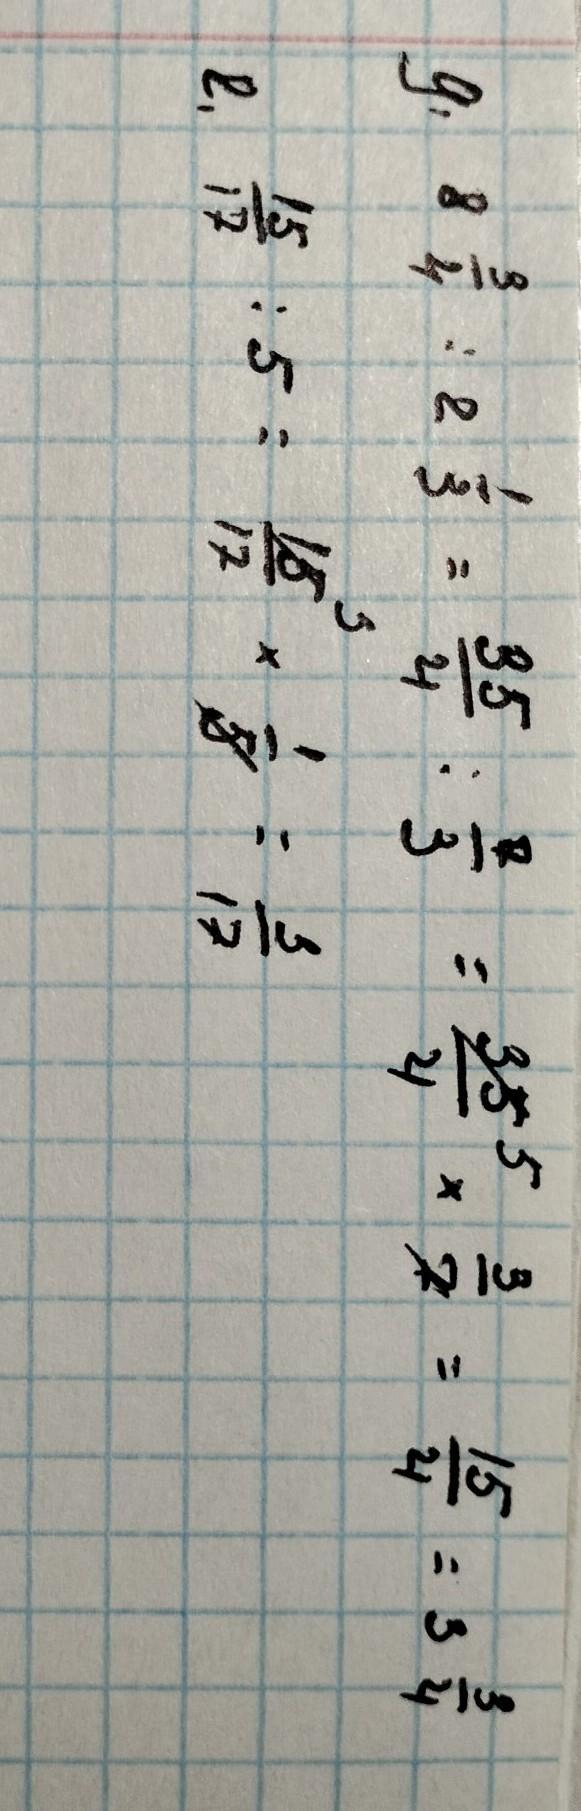 g. 8 3/4 : 2 1/3 = 35/4 : 7/3 = 35/4 5 × 3/7 = 15/4 = 3 3/4
e. 15/17 : 5 = 15/17 3 × 1/5 = 3/17